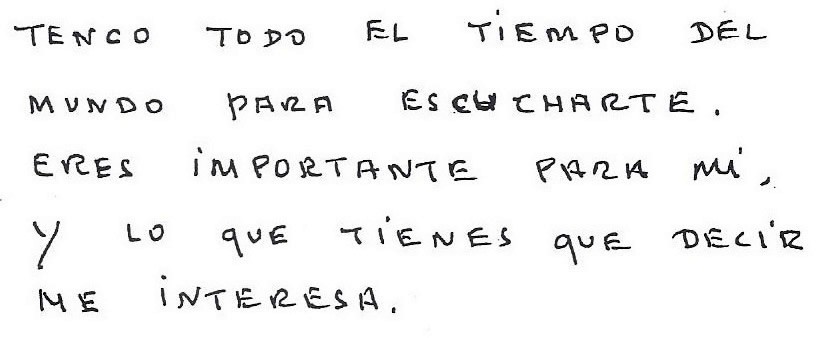 TENGO TODO EL TiEMPO DEL
MUNDO PARA ESCUCHARTE.
ERES iMPORTANTE PARA Mí,
Y LO QUE TiENES QUE DECiR
ME iNTERESA.